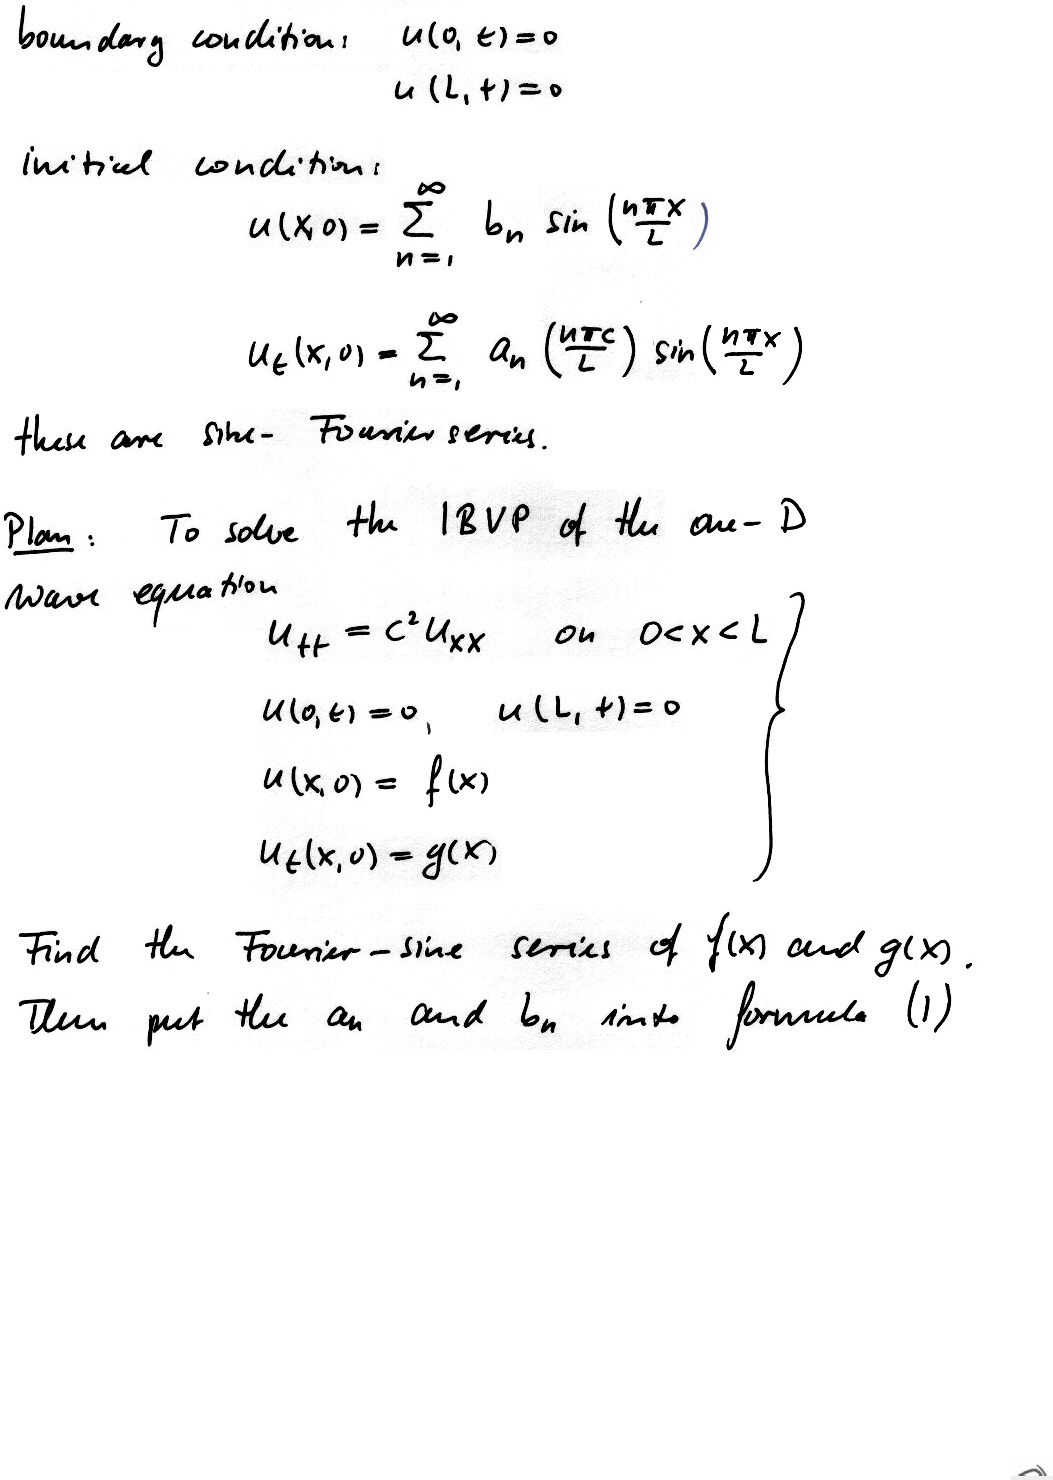 boundary condition: u(0, t) = 0
u(L, t) = 0
initial condition:
u(x, 0) = ∑_{n=1}^{∞} b_n sin (nπx/L)
u_t(x, 0) = ∑_{n=1}^{∞} a_n (nπc/L) sin (nπx/L)
these are sine-Fourier series.
Plan: To solve the IBVP of the one-D
wave equation
u_tt = c² u_xx on 0<x<L
u(0, t) = 0, u(L, t) = 0
u(x, 0) = f(x)
u_t(x, 0) = g(x)
Find the Fourier-sine series of f(x) and g(x).
Then put the a_n and b_n into formula (1)